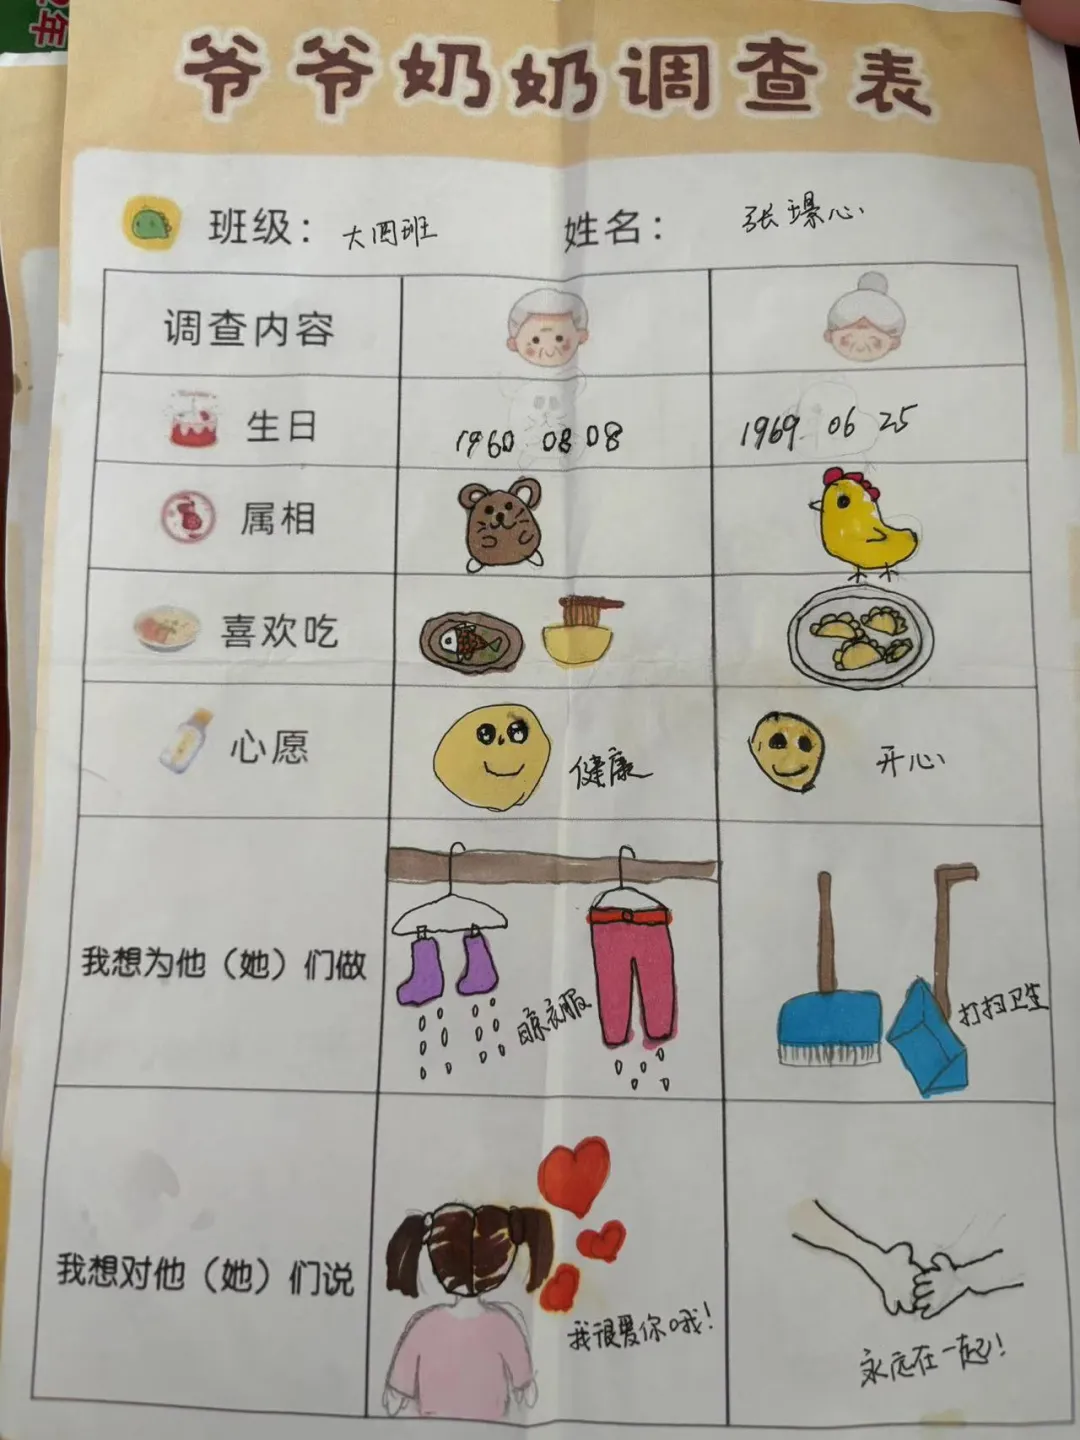 爷爷奶奶调查表
班级：大四班 姓名：张璟心
调查内容
生日 1960 08 08 1969 06 25
属相
喜欢吃
心愿 健康 开心
我想为他（她）们做 晾衣服 打扫卫生
我想对他（她）们说 我很爱你哦！ 永远在一起！